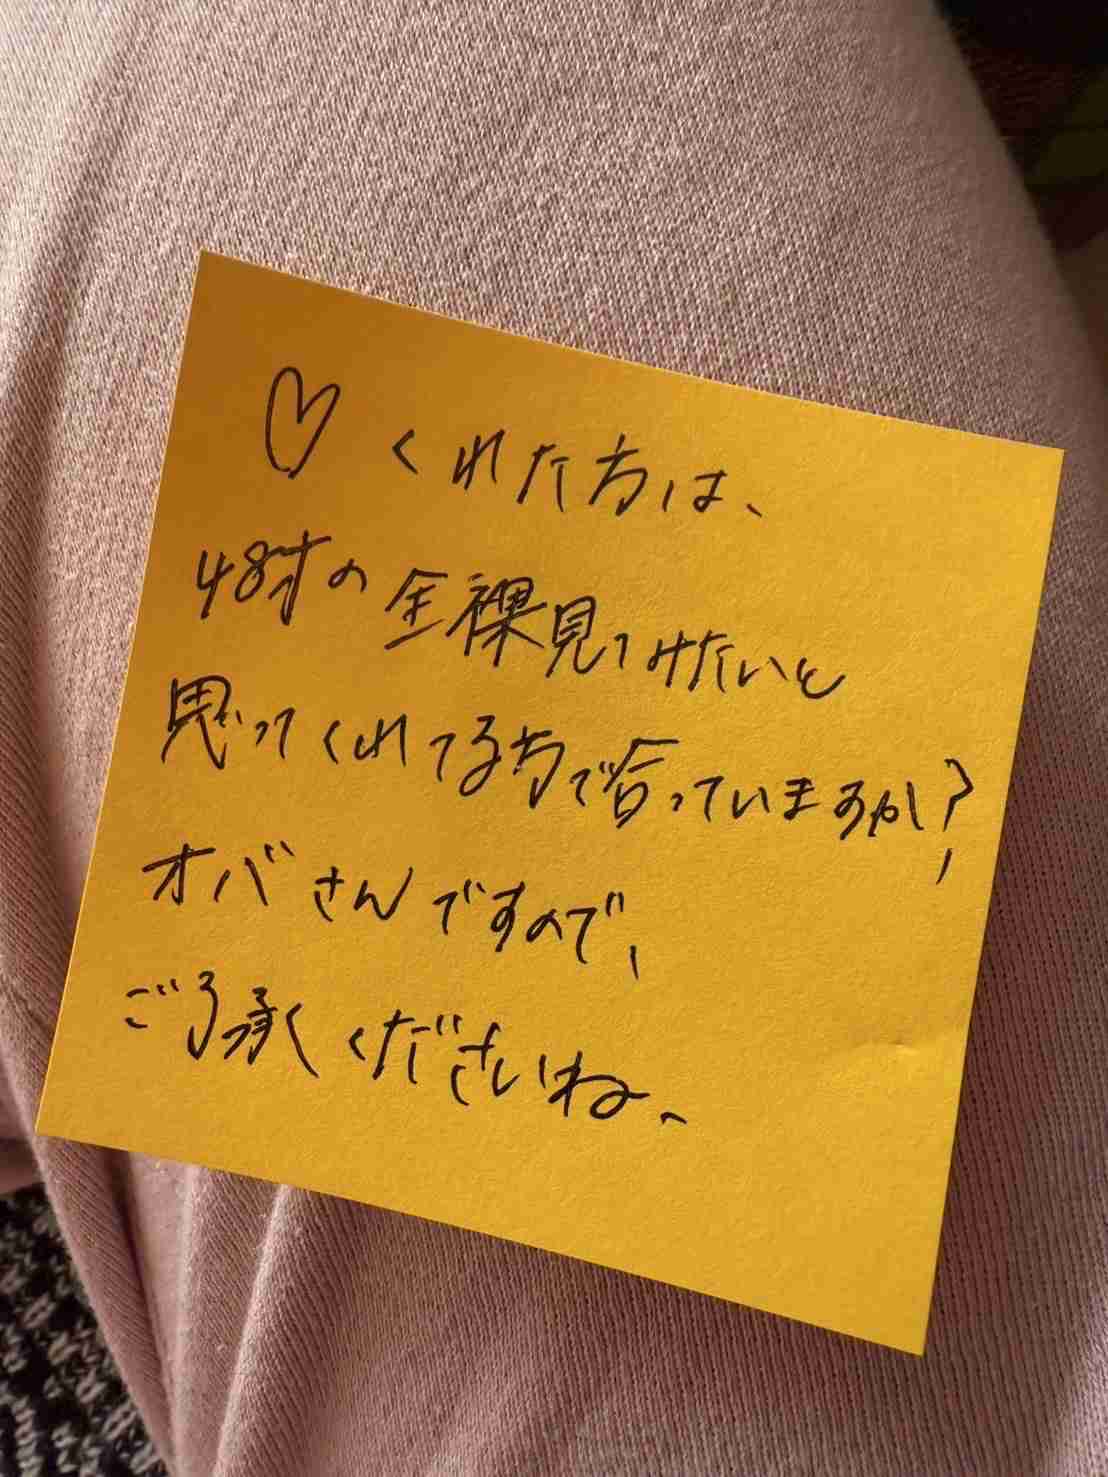 ♡くれた方は、
48才の全裸見てみたいと
思ってくれてる方で合っていますか?
オバさんですので、
ご了承くださいね、